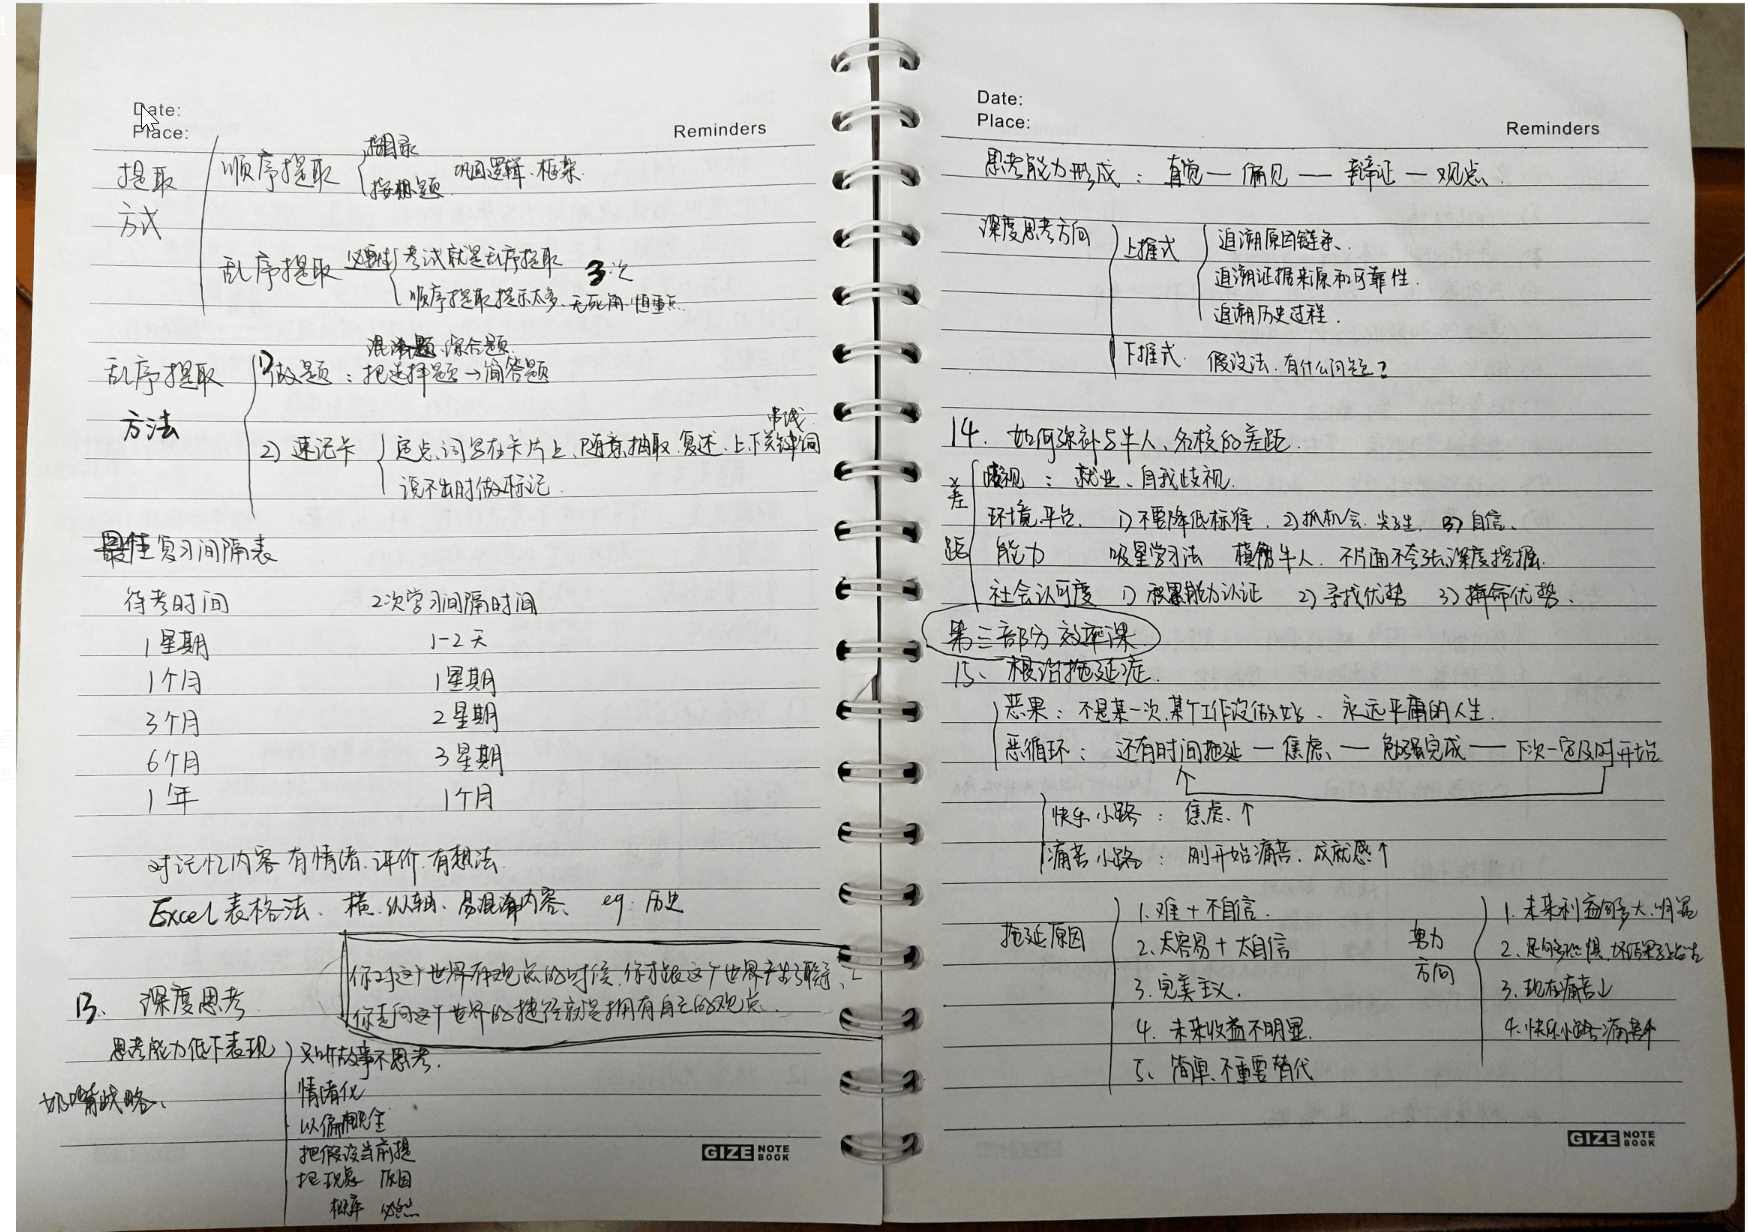 Date:
Place:
Reminders
提取方式
顺序提取
按目录
按标题
巩固逻辑、框架
乱序提取
必要性
考试就是乱序提取
3次
顺序提取提示太多、无死角、恒重点
乱序提取方法
混淆题、综合题
1)做题：把选择题→简答题
串线
2) 速记卡
定点、词写在卡片上、随意抽取、复述、上下关键词
说不出时做标记
最佳复习间隔表
待考时间 2次学习间隔时间
1星期 1-2天
1个月 1星期
3个月 2星期
6个月 3星期
1年 1个月
对记忆内容有情绪、评价、有想法
Excel表格法、横、纵轴、易混淆内容、eg: 历史
你对这个世界有观点的时候、你才跟这个世界产生了联系、
你走向这个世界的捷径就是拥有自己的观点.
13、深度思考
思考能力低下表现
奶嘴战略、
只听故事不思考.
情绪化
以偏概全
把假设当前提
把现象 原因
概率 必然
GIZE NOTE BOOK
Date:
Place:
Reminders
思考能力形成：直觉—偏见—辩证—观点.
深度思考方向
上推式
追溯原因链条、
追溯证据来源和可靠性.
追溯历史过程.
下推式
假设法、有什么问题?
14. 如何弥补与牛人、名校的差距.
差距
歧视：就业、自我歧视.
环境、平台、1)不要降低标准、2)抓机会、 3)自信、
能力 吸星学习法 模仿牛人、不片面不夸张、深度挖掘.
社会认可度 1) 积累能力认证 2) 寻找优势 3) 拼命优势、
第三部分 效率课
15、根治拖延症.
恶果：不是某一次、某个工作没做好、永远平庸的人生.
恶循环：还有时间拖延—焦虑、—勉强完成—下次一定及时开始
快乐小路：焦虑↑
痛苦小路：刚开始痛苦、成就感↑
拖延原因
1. 难+不自信.
2. 太容易+太自信
3. 完美主义.
4. 未来收益不明显.
5、简单、不重要替代
努力方向
1. 未来利益足够大、明显
2. 足够恐惧、
3. 现在痛苦↓
4. 快乐小路痛苦↑
GIZE NOTE BOOK